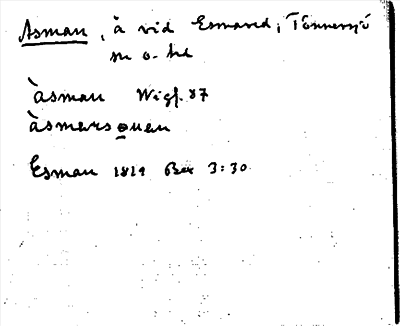 Åsman, å vid Esmared, i Tönnersjö
sn o. hd
àsman Wigf. 87
àsmarsɷuen
Esman 1819 Bex 3:30